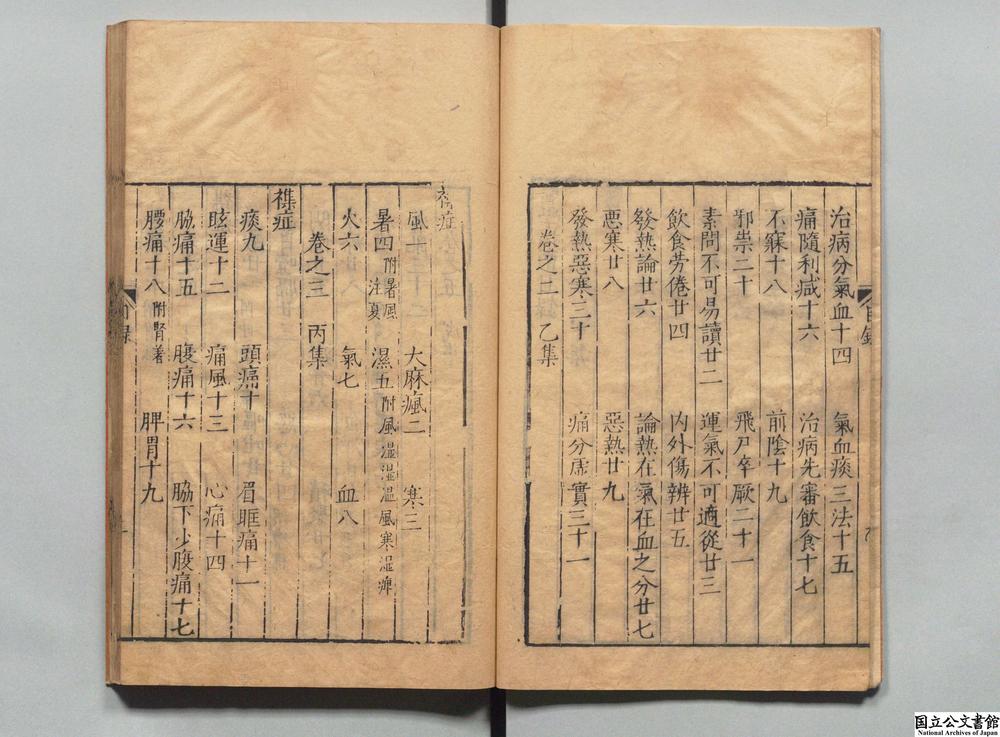 治病分氣血十四　氣血痰三法十五
痛隨利減十六　治病先審飲食十七
不寐十八　前陰十九
邪祟二十　飛尸卒厥二十一
素問不可易讀廿二　運氣不可適從廿三
飲食劳倦廿四　内外傷辨廿五
發熱論廿六　論熱在氣在血之分廿七
悪寒廿八　惡熱廿九
發熱惡寒三十　痛分虛實三十一
卷之二　乙集
襍症
風一　大麻瘋二　寒三
暑四附暑風注夏　濕五附風湿湿温風寒湿痺
火六　氣七　血八
卷之三　丙集
襍症
痰九　頭痛十　眉眶痛十一
眩運十二　痛風十三　心痛十四
脇痛十五　腹痛十六　脇下少腹痛十七
腰痛十八附腎著　脾胃十九
目錄
国立公文書館
National Archives of Japan